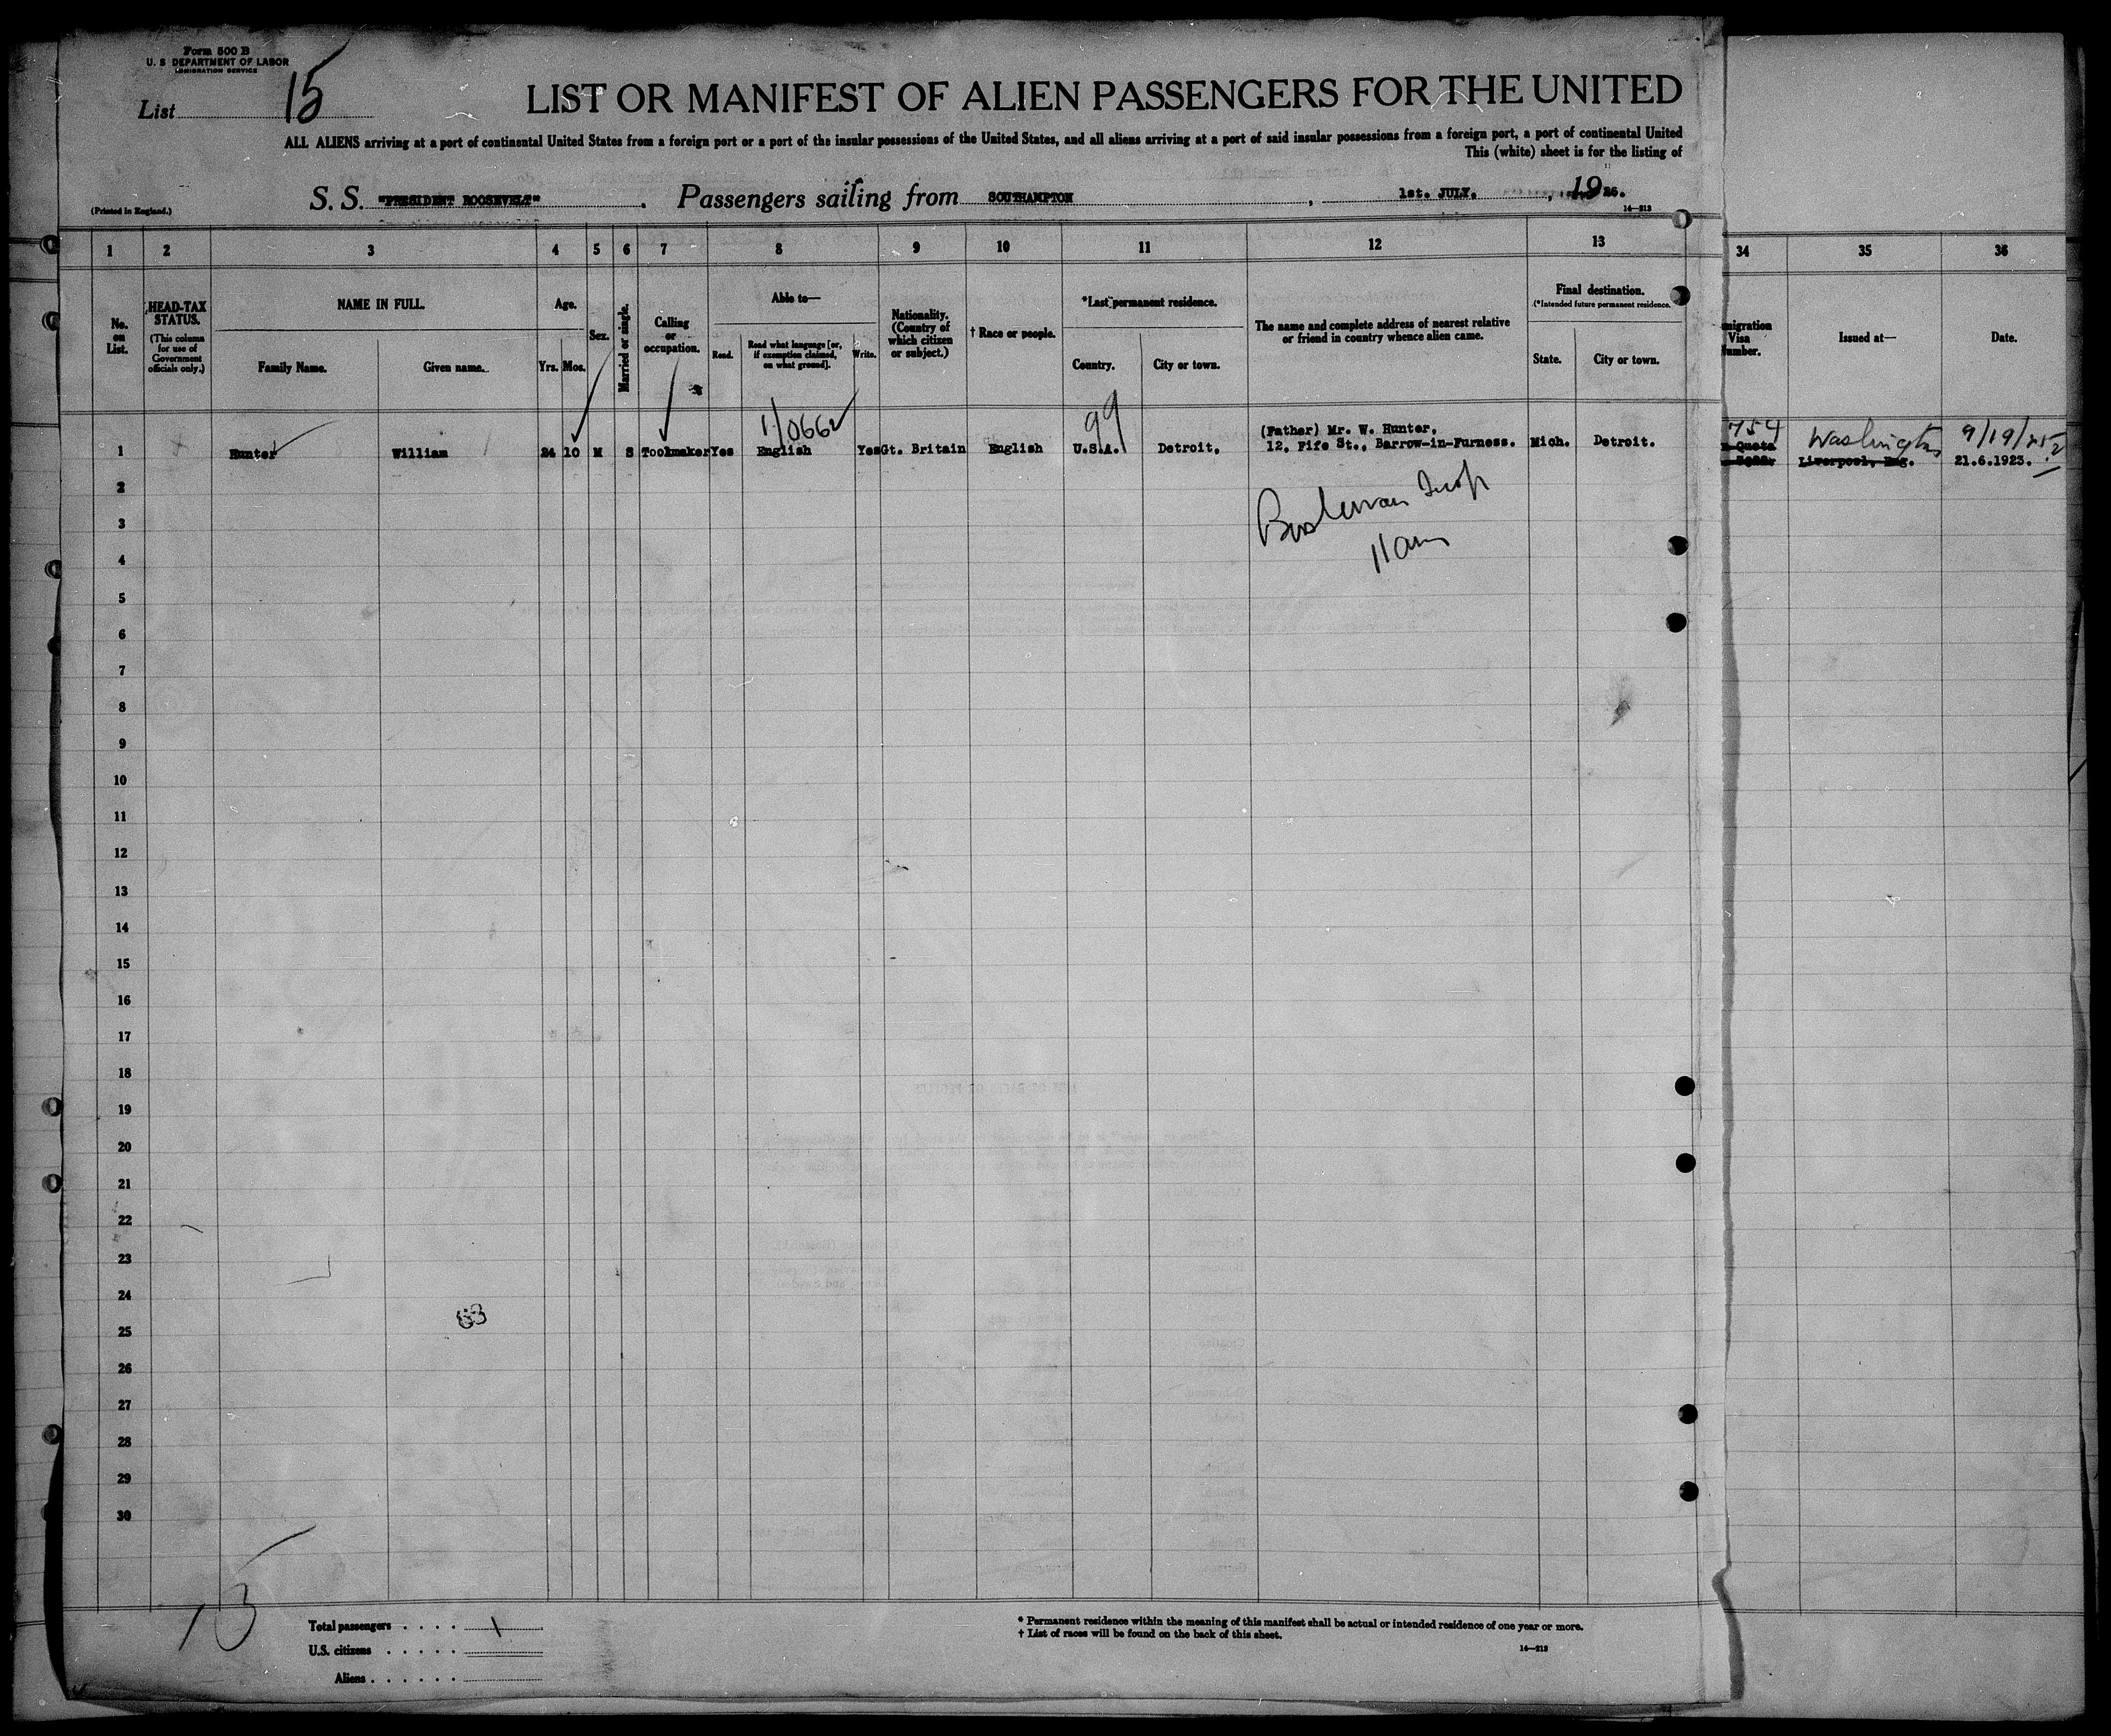 Form 500 B
U. S DEPARTMENT OF LABOR
IMMIGRATION SERVICE
List 15
LIST OR MANIFEST OF ALIEN PASSENGERS FOR THE UNITED
ALL ALIENS arriving at a port of continental United States from a foreign port or a port of the insular possessions of the United States, and all aliens arriving at a port of said insular possessions from a foreign port, a port of continental United
This (white) sheet is for the listing of
(Printed in England.)
S. S. "PRESIDENT ROOSEVELT" . Passengers sailing from SOUTHAMPTON , 1st. JULY. , 1926.
14—213
1 2 3 4 5 6 7 8 9 10 11 12 13 34 35 36
No. on List.
HEAD-TAX STATUS.
(This column for use of Government officials only.)
NAME IN FULL.
Family Name. Given name.
Age.
Yrs. Mos.
Sex.
Married or single.
Calling or occupation.
Able to—
Read. Read what language [or, if exemption claimed, on what ground]. Write.
Nationality. (Country of which citizen or subject.)
† Race or people.
*Last permanent residence.
Country. City or town.
The name and complete address of nearest relative or friend in country whence alien came.
Final destination.
(*Intended future permanent residence.
State. City or town.
migration Visa Number.
Issued at—
Date.
1/0662
99
754 Washington 9/19/25
1 Hunter William 24 10 M S Toolmaker Yes English Yes Gt. Britain English U.S.A. Detroit. (Father) Mr. W. Hunter, 12, Fife St., Barrow-in-Furness. Mich. Detroit. Quota Liverpool, Eng. 21.6.1923.
2
3
11am
4
5
6
7
8
9
10
11
12
13
14
15
16
17
18
19
20
21
22
23
24
25
26
27
28
29
30
15
Total passengers . . . . 1
U.S. citizens . . . . .
Aliens . . . . . .
* Permanent residence within the meaning of this manifest shall be actual or intended residence of one year or more.
† List of races will be found on the back of this sheet.
14—213